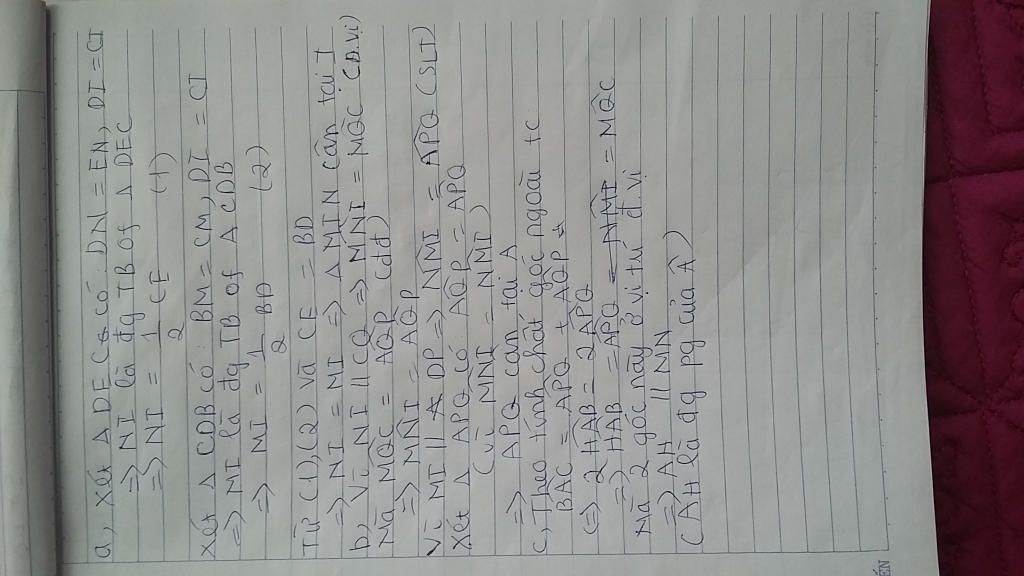 a, Xét Δ DEC có: DN = EN, DI = CI
=> NI là đg TB of Δ DEC
=> NI = 1/2 CE (1)
Xét Δ CDB có: BM = CM, DI = CI
=> MI là đg TB of Δ CDB
=> MI = 1/2 BD (2)
Từ (1), (2) và CE = BD
=> NI = MI => Δ MIN cân tại I
b, Vì NI || CQ => MNI = MQC (đ.vị)
Mà MQC = AQP (đđ)
=> MNI = AQP
Vì MI || DP => NMI = APQ (SLT)
Xét Δ APQ có AQP = APQ
(vì MNI = NMI)
=> APQ cân tại A
c, Theo tính chất góc ngoài tc
BAC = APQ + AQP
<=> 2 HAB = 2 APQ
=> HAB = APQ = MQC
Mà 2 góc này ở vị trí đ.vị
=> AH || MN
(AH là đg pg của Â)
ẾN